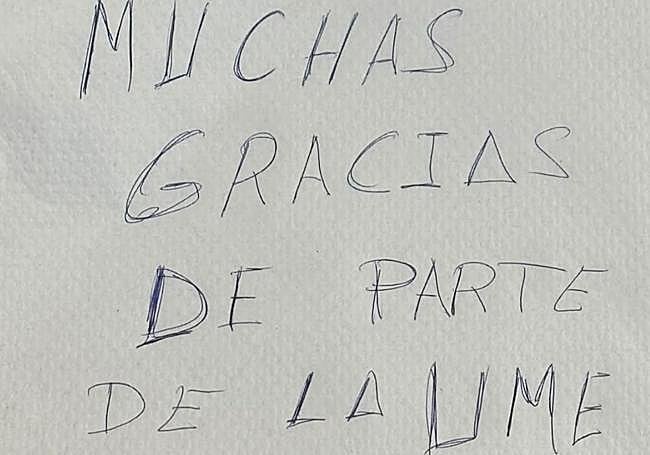 MUCHAS
GRACIAS
DE PARTE
DE LA UME